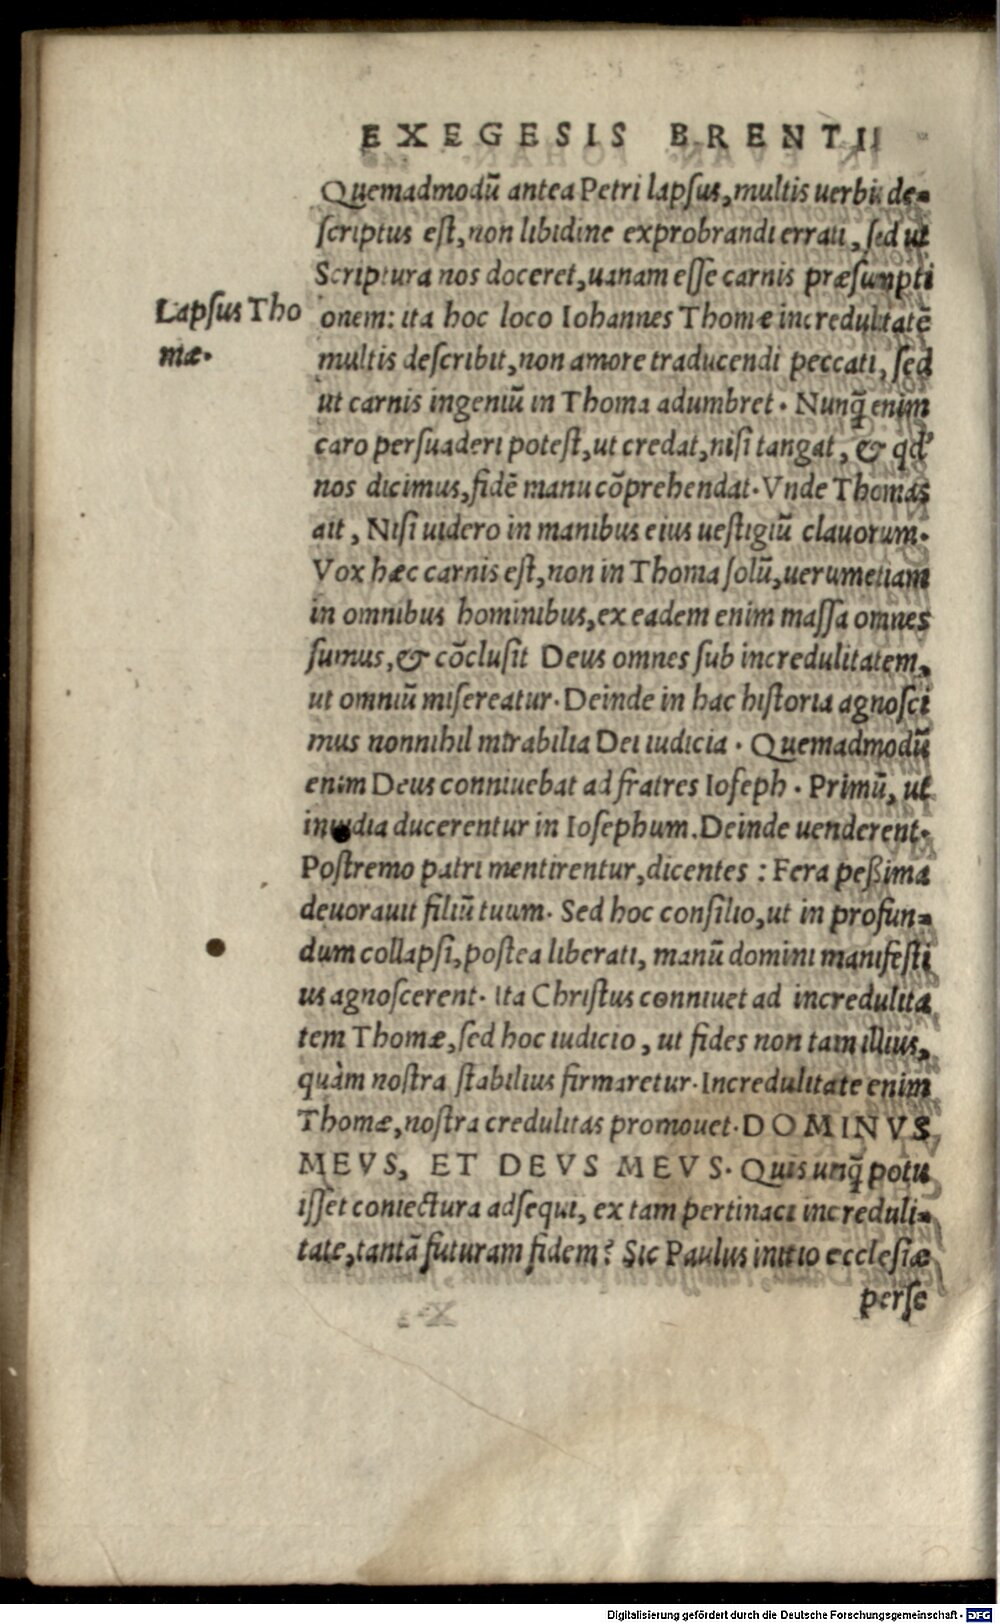 EXEGESIS BRENTII
Quemadmodū antea Petri lapſus, multis uerbis de=
ſcriptus eſt, non libidine exprobrandi errati, ſed ut
Scriptura nos doceret, uanam eſſe carnis præſumpti
Lapſus Tho
mæ.
onem: ita hoc loco Iohannes Thomæ incredulitatē
multis deſcribit, non amore traducendi peccati, ſed
ut carnis ingeniū in Thoma adumbret. Nunq̃ enim
caro perſuaderi poteſt, ut credat, niſi tangat, & qd'
nos dicimus, fidē manu cōprehendat. Vnde Thomas
ait, Niſi uidero in manibus eius ueſtigiū clauorum.
Vox hæc carnis eſt, non in Thoma ſolū, uerumetiam
in omnibus hominibus, ex eadem enim maſſa omnes
ſumus, & cōcluſit Deus omnes ſub incredulitatem,
ut omniū miſereatur. Deinde in hac hiſtoria agnoſci
mus nonnihil mirabilia Dei iudicia. Quemadmodū
enim Deus conniuebat ad fratres Ioſeph. Primū, ut
inuidia ducerentur in Ioſephum. Deinde uenderent.
Poſtremo patri mentirentur, dicentes: Fera peßima
deuorauit filiū tuum. Sed hoc conſilio, ut in profun=
dum collapſi, poſtea liberati, manū domini manifeſti
us agnoſcerent. Ita Chriſtus conniuet ad incredulita
tem Thomæ, ſed hoc iudicio, ut fides non tam illius,
quàm noſtra ſtabilius firmaretur. Incredulitate enim
Thomæ, noſtra credulitas promouet. DOMINVS
MEVS, ET DEVS MEVS. Quis unq̃ potu
iſſet coniectura adſequi, ex tam pertinaci increduli=
tate, tantā futuram fidem? Sic Paulus initio eccleſiæ
perſe
Digitalisierung gefördert durch die Deutsche Forschungsgemeinschaft - DFG